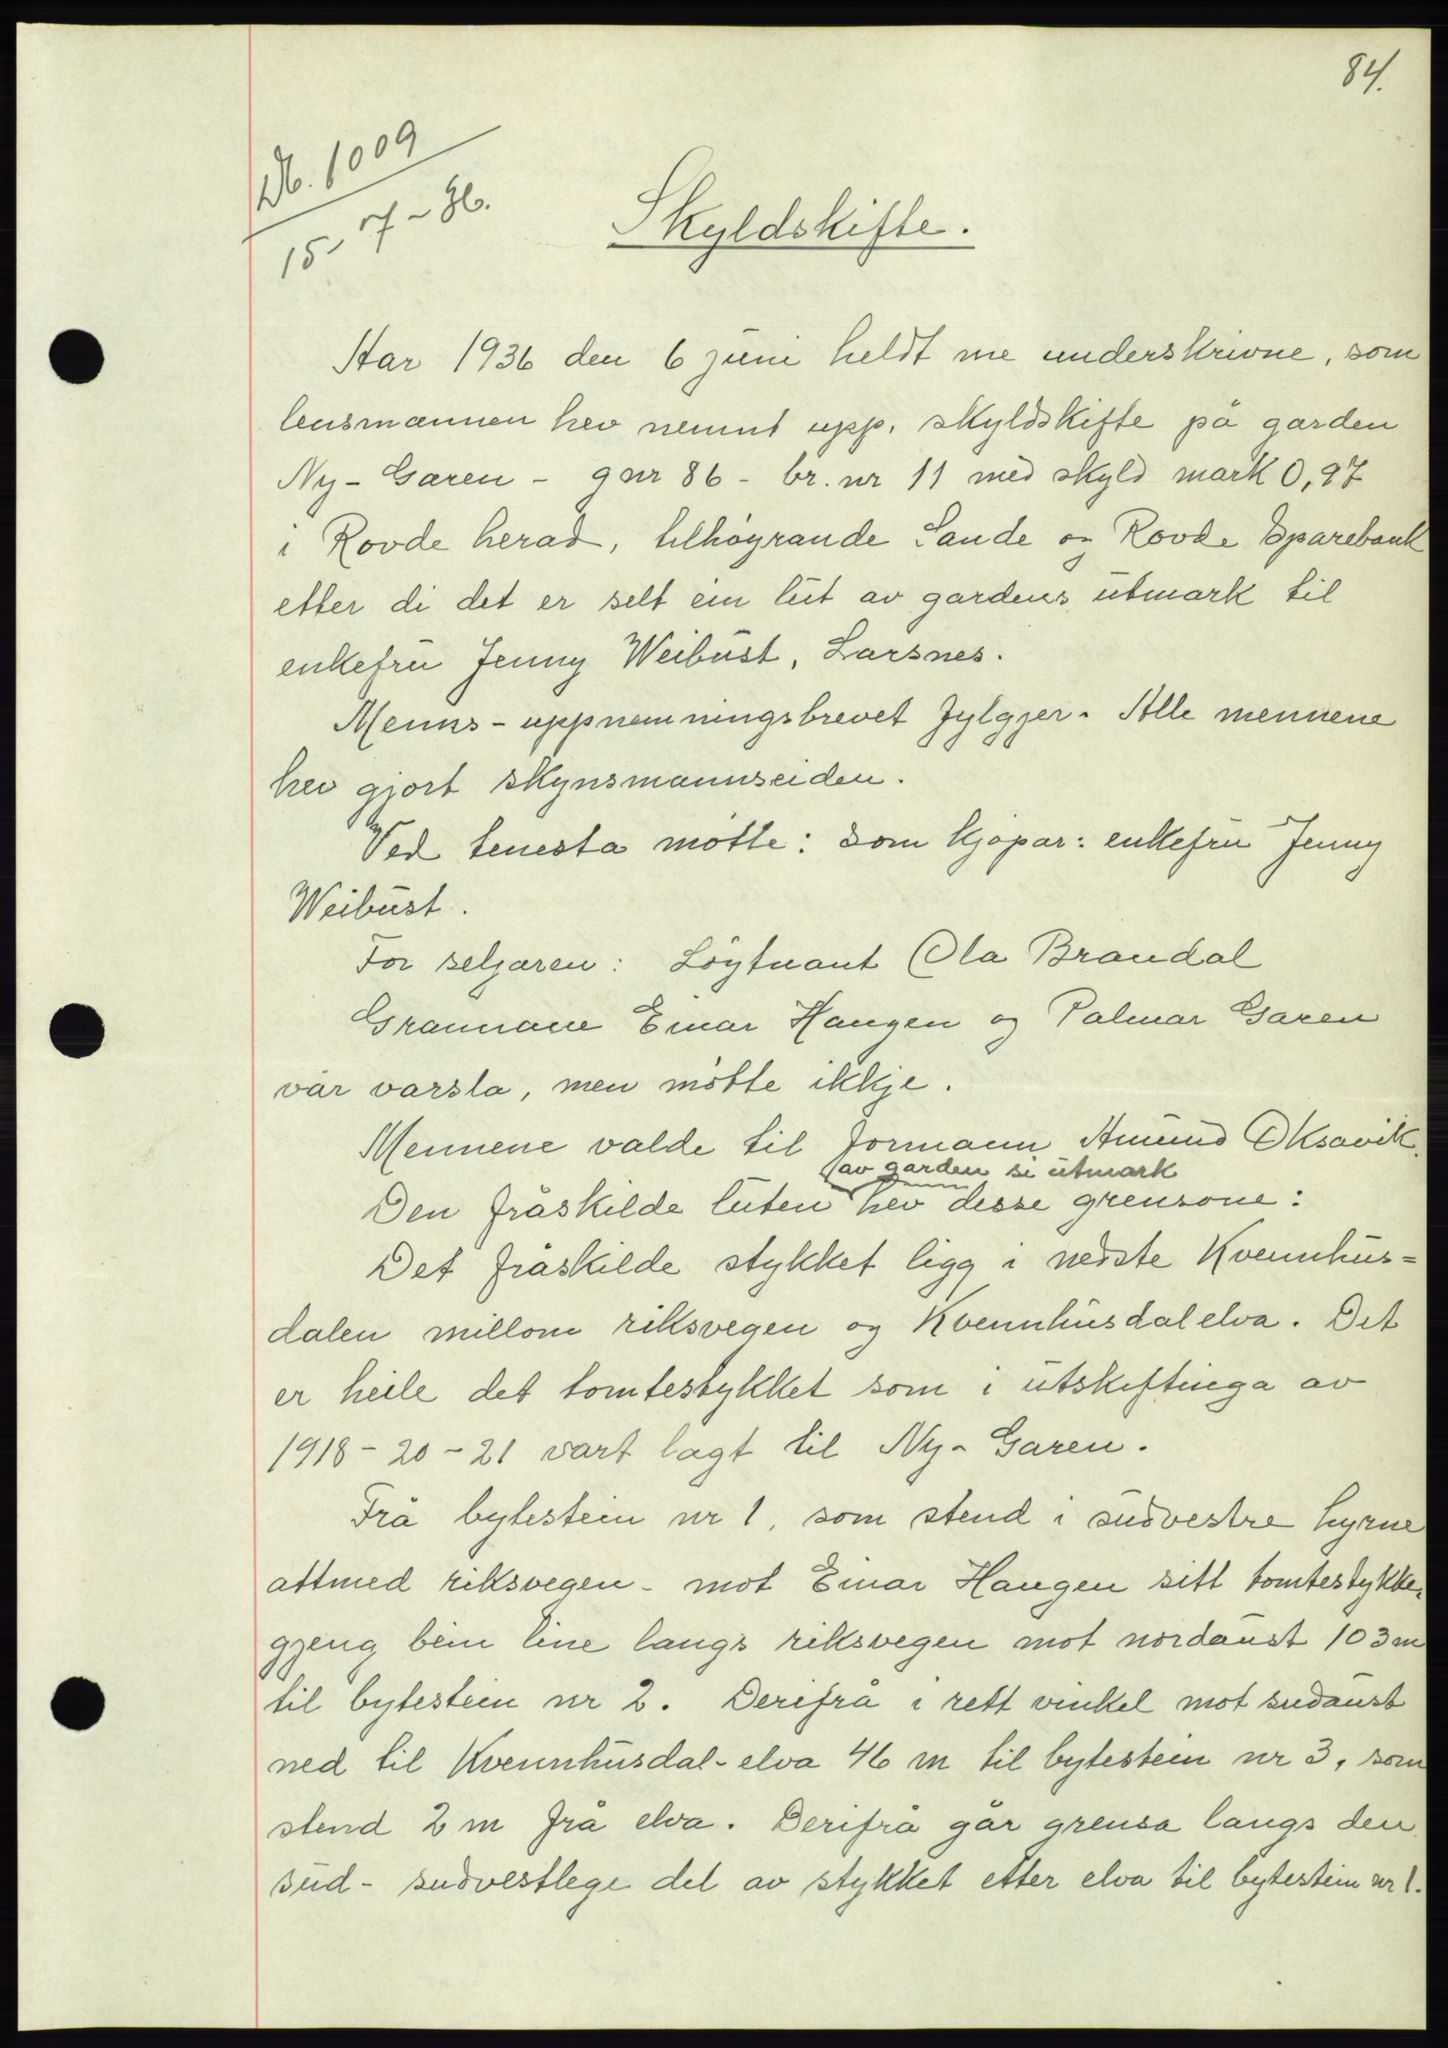 84.
Db. 1009
15-7-36.
Skyldskifte.
Aar 1936 den 6 juni heldt me underskrivne, som
lensmannen hev nemnt upp, skyldskifte på garden
Ny-Garen - gnr 86 - br. nr 11 med skyld mark 0,97
i Rovde herad, tilhøyrande Sande og Rovde Sparebank
etter di det er selt ein lut av gardens utmark til
enkefru Jenny Weibust, Larsnes.
Menns-uppnemningsbrevet fylgjer. Alle mennene
hev gjort skynsmannseiden.
Ved tenesta møtte: Som kjøpar: enkefru Jenny
Weibust.
For seljaren: Løytnant Ola Brandal
Grannane Einar Haugen og Palmar Garen
var varsla, men møtte ikkje.
Mennene valde til formann Amund Oksavik.
av garden si utmark
Den fråskilde luten hev desse grensone:
Det fråskilde stykket ligg i nedste Kvennhus-
dalen millom riksvegen og Kvennhusdalelva. Det
er heile det tomtestykket som i utskiftinga av
1918-20-21 vart lagt til Ny-Garen.
Frå bytestein nr 1, som stend i sudvestre hyrne
attmed riksvegen - mot Einar Haugen sitt tomtestykke,
gjeng bein line langs riksvegen mot nordaust 103 m
til bytestein nr 2. Derifrå i rett vinkel mot sudaust
ned til Kvennhusdal-elva 46 m til bytestein nr 3, som
stend 2 m frå elva. Derifrå går grensa langs den
sud-sudvestlege del av stykket etter elva til bytestein nr 1.